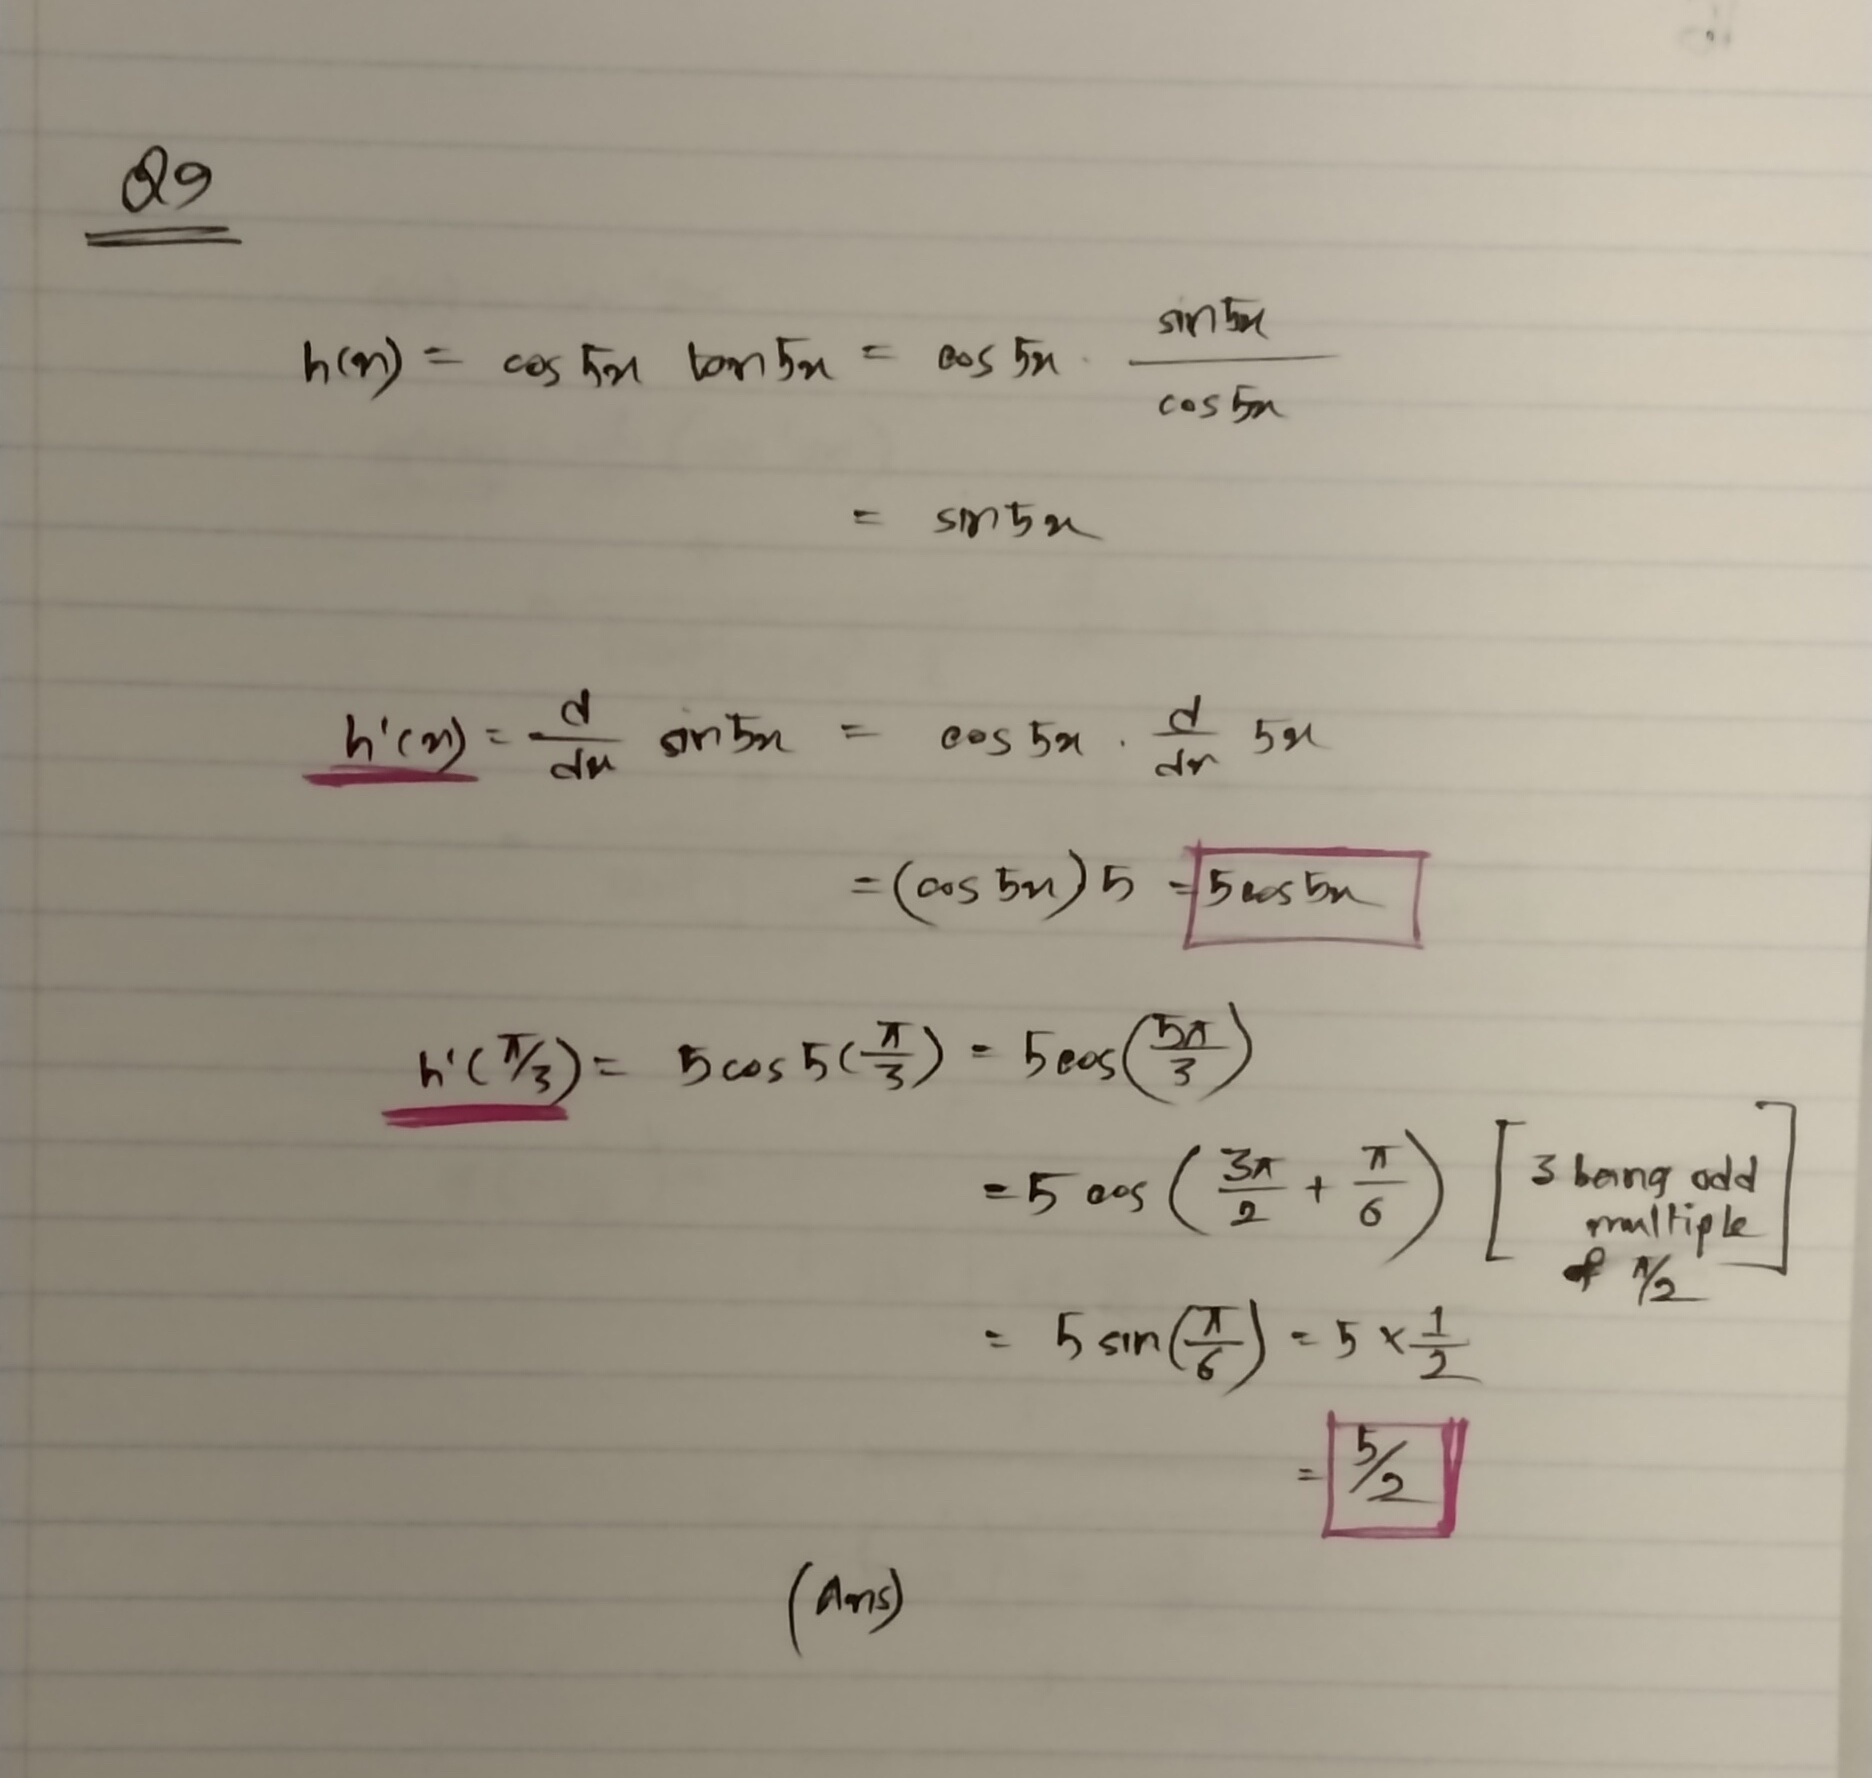 Q9
h(x) = cos 5x tan 5x = cos 5x · sin 5x / cos 5x
= sin 5x
h'(x) = d/dx sin 5x = cos 5x · d/dx 5x
= (cos 5x) 5 = 5 cos 5x
h'(π/3) = 5 cos 5(π/3) = 5 cos (5π/3)
= 5 cos (3π/2 + π/6) [3 being odd
multiple
of π/2]
= 5 sin (π/6) = 5 × 1/2
= 5/2
(Ans)